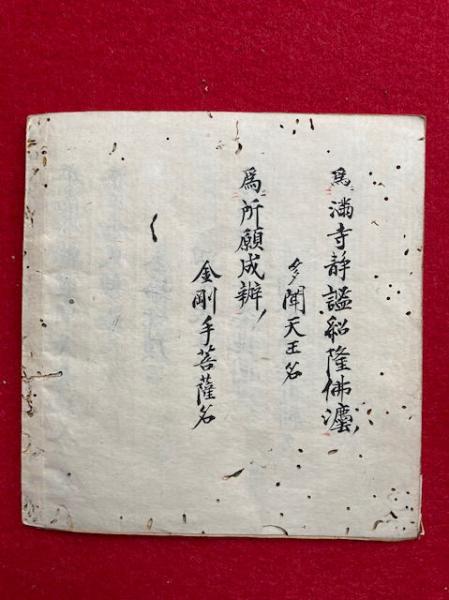 為満寺靜謐紹隆佛法
多聞天王名
為所願成辦
金剛手菩薩名